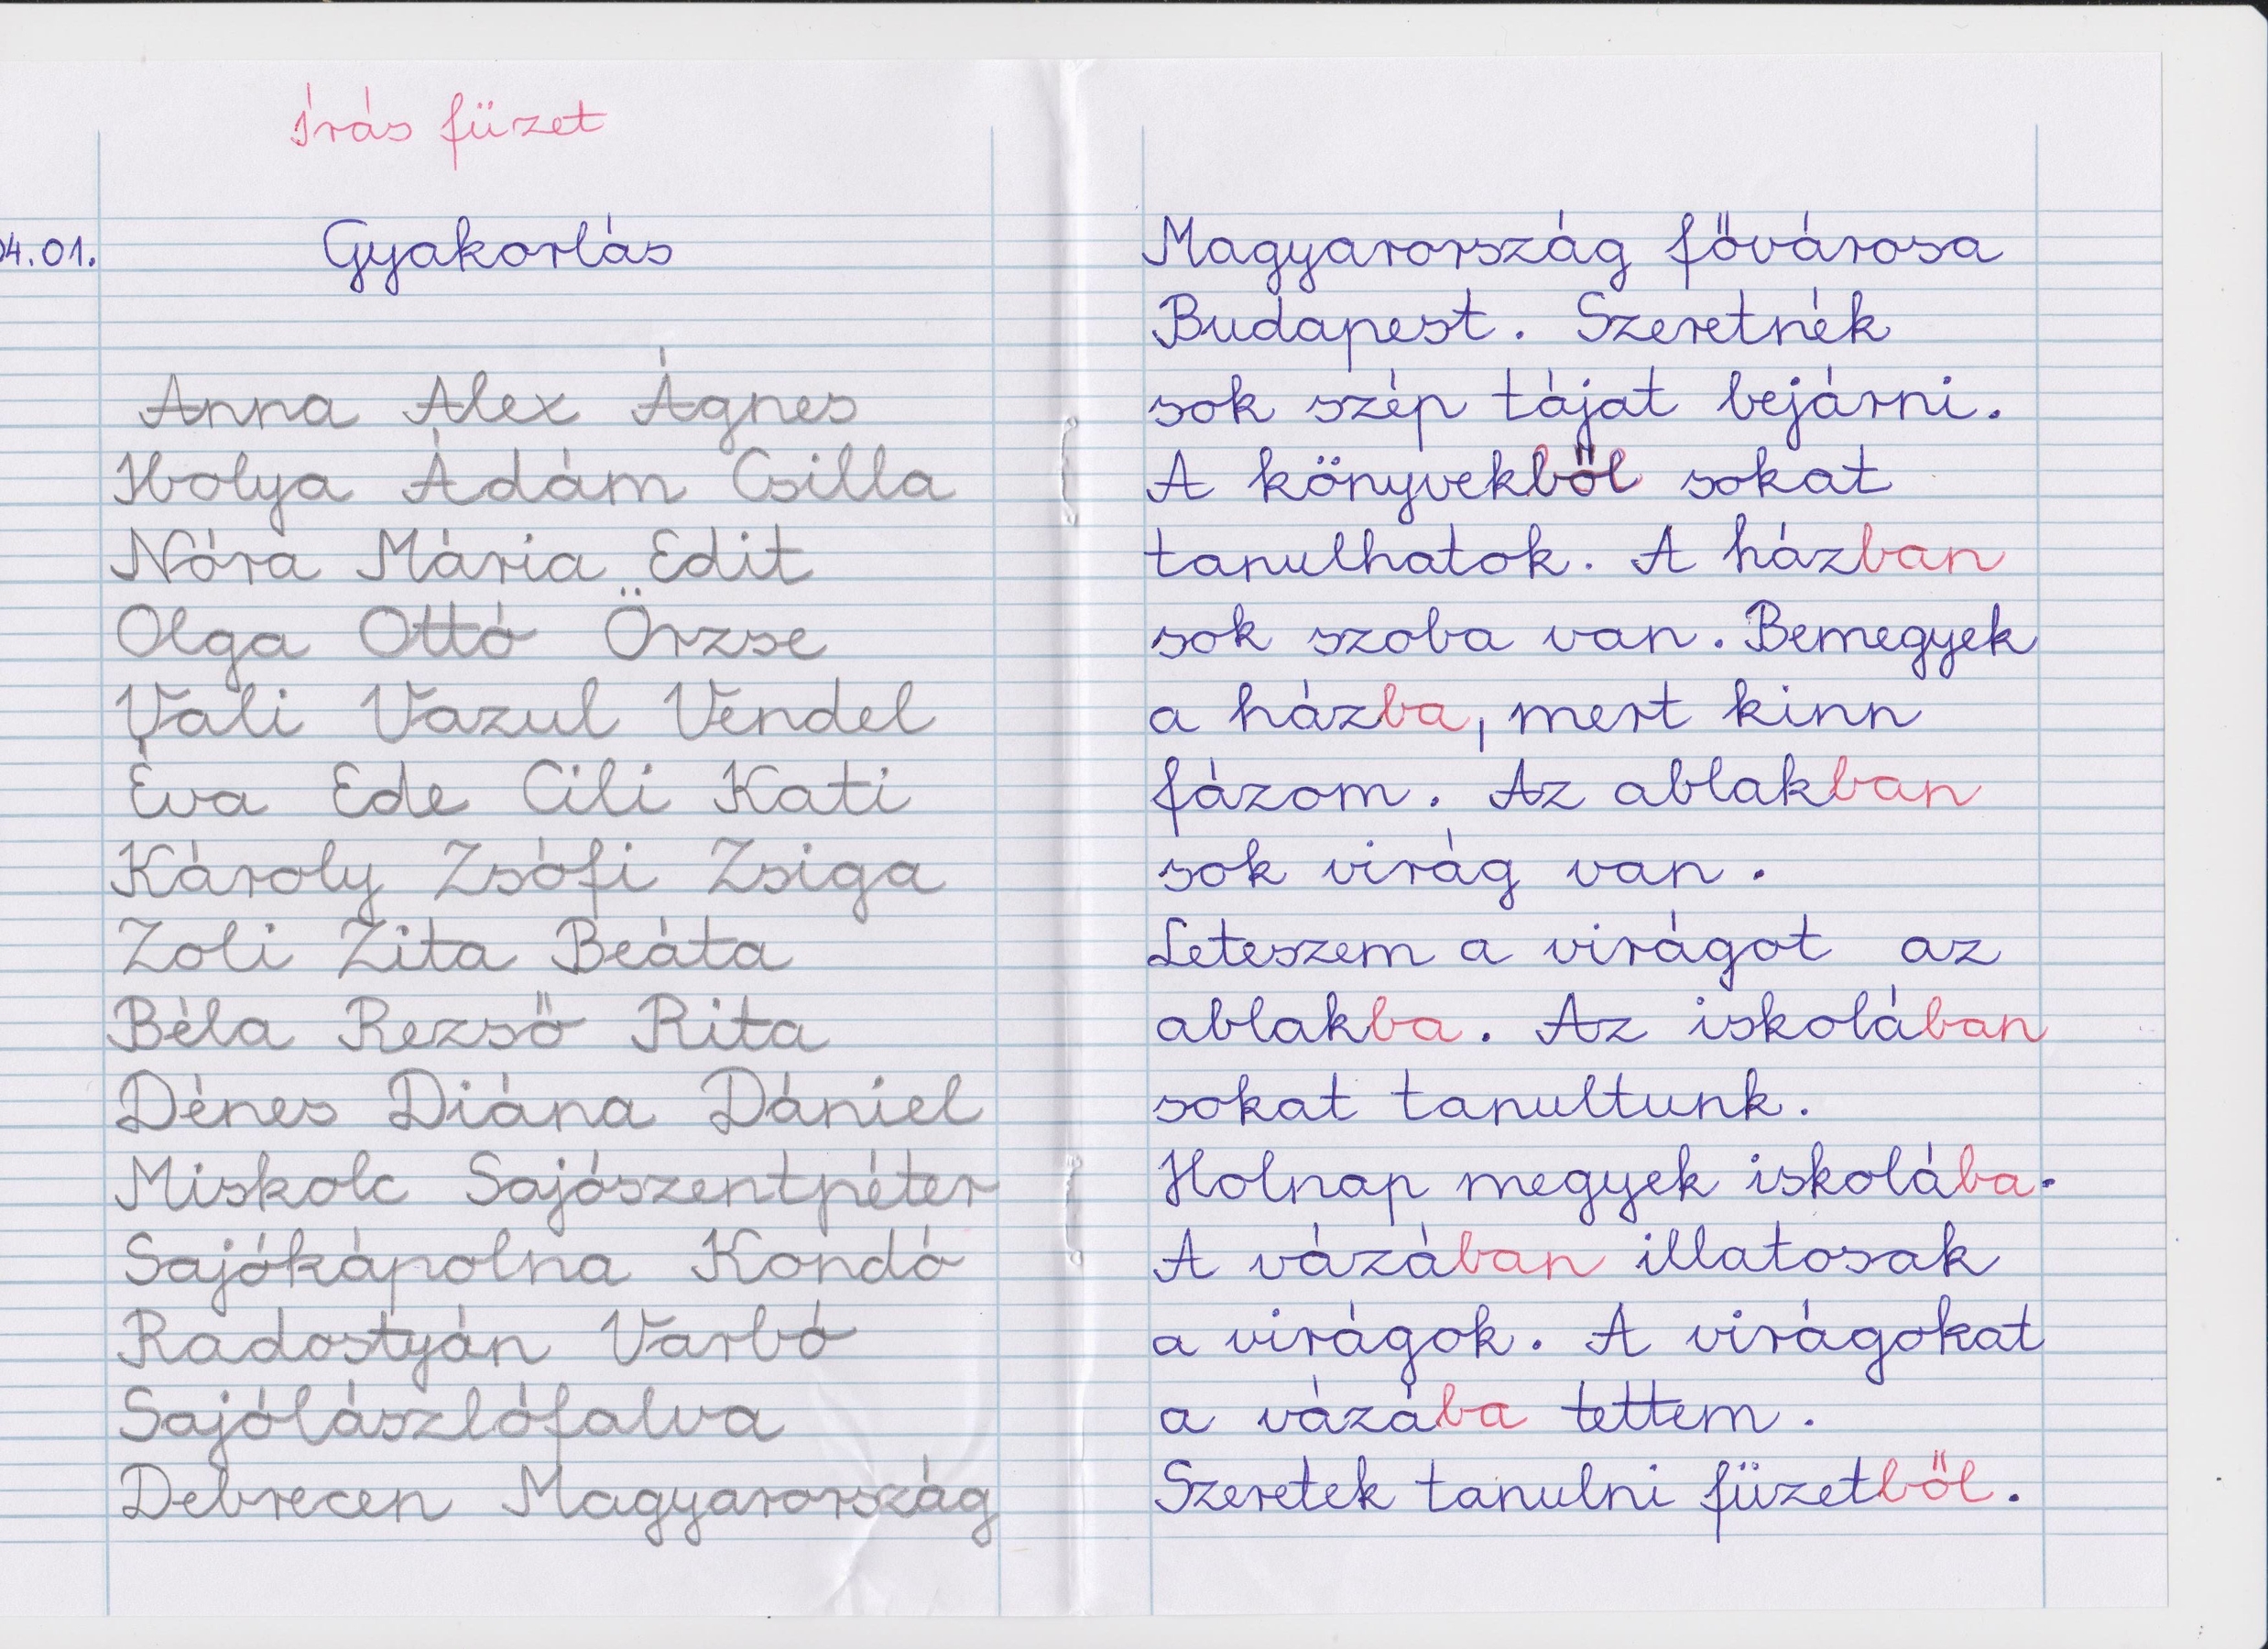 Írás füzet
04.01.
Gyakorlás
Anna Alex Ágnes
Ibolya Ádám Csilla
Nóra Mária Edit
Olga Ottó Örzse
Vali Vazul Vendel
Éva Ede Cili Kati
Károly Zsófi Zsiga
Zoli Zita Beáta
Béla Rezső Rita
Dénes Diána Dániel
Miskolc Sajószentpéter
Sajókápolna Kondó
Radostyán Varbó
Sajólászlófalva
Debrecen Magyarország
Magyarország fővárosa
Budapest. Szeretnék
sok szép tájat bejárni.
A könyvekből sokat
tanulhatok. A házban
sok szoba van. Bemegyek
a házba, mert kinn
fázom. Az ablakban
sok virág van.
Leteszem a virágot az
ablakba. Az iskolában
sokat tanultunk.
Holnap megyek iskolába.
A vázában illatosak
a virágok. A virágokat
a vázába tettem.
Szeretek tanulni füzetből.